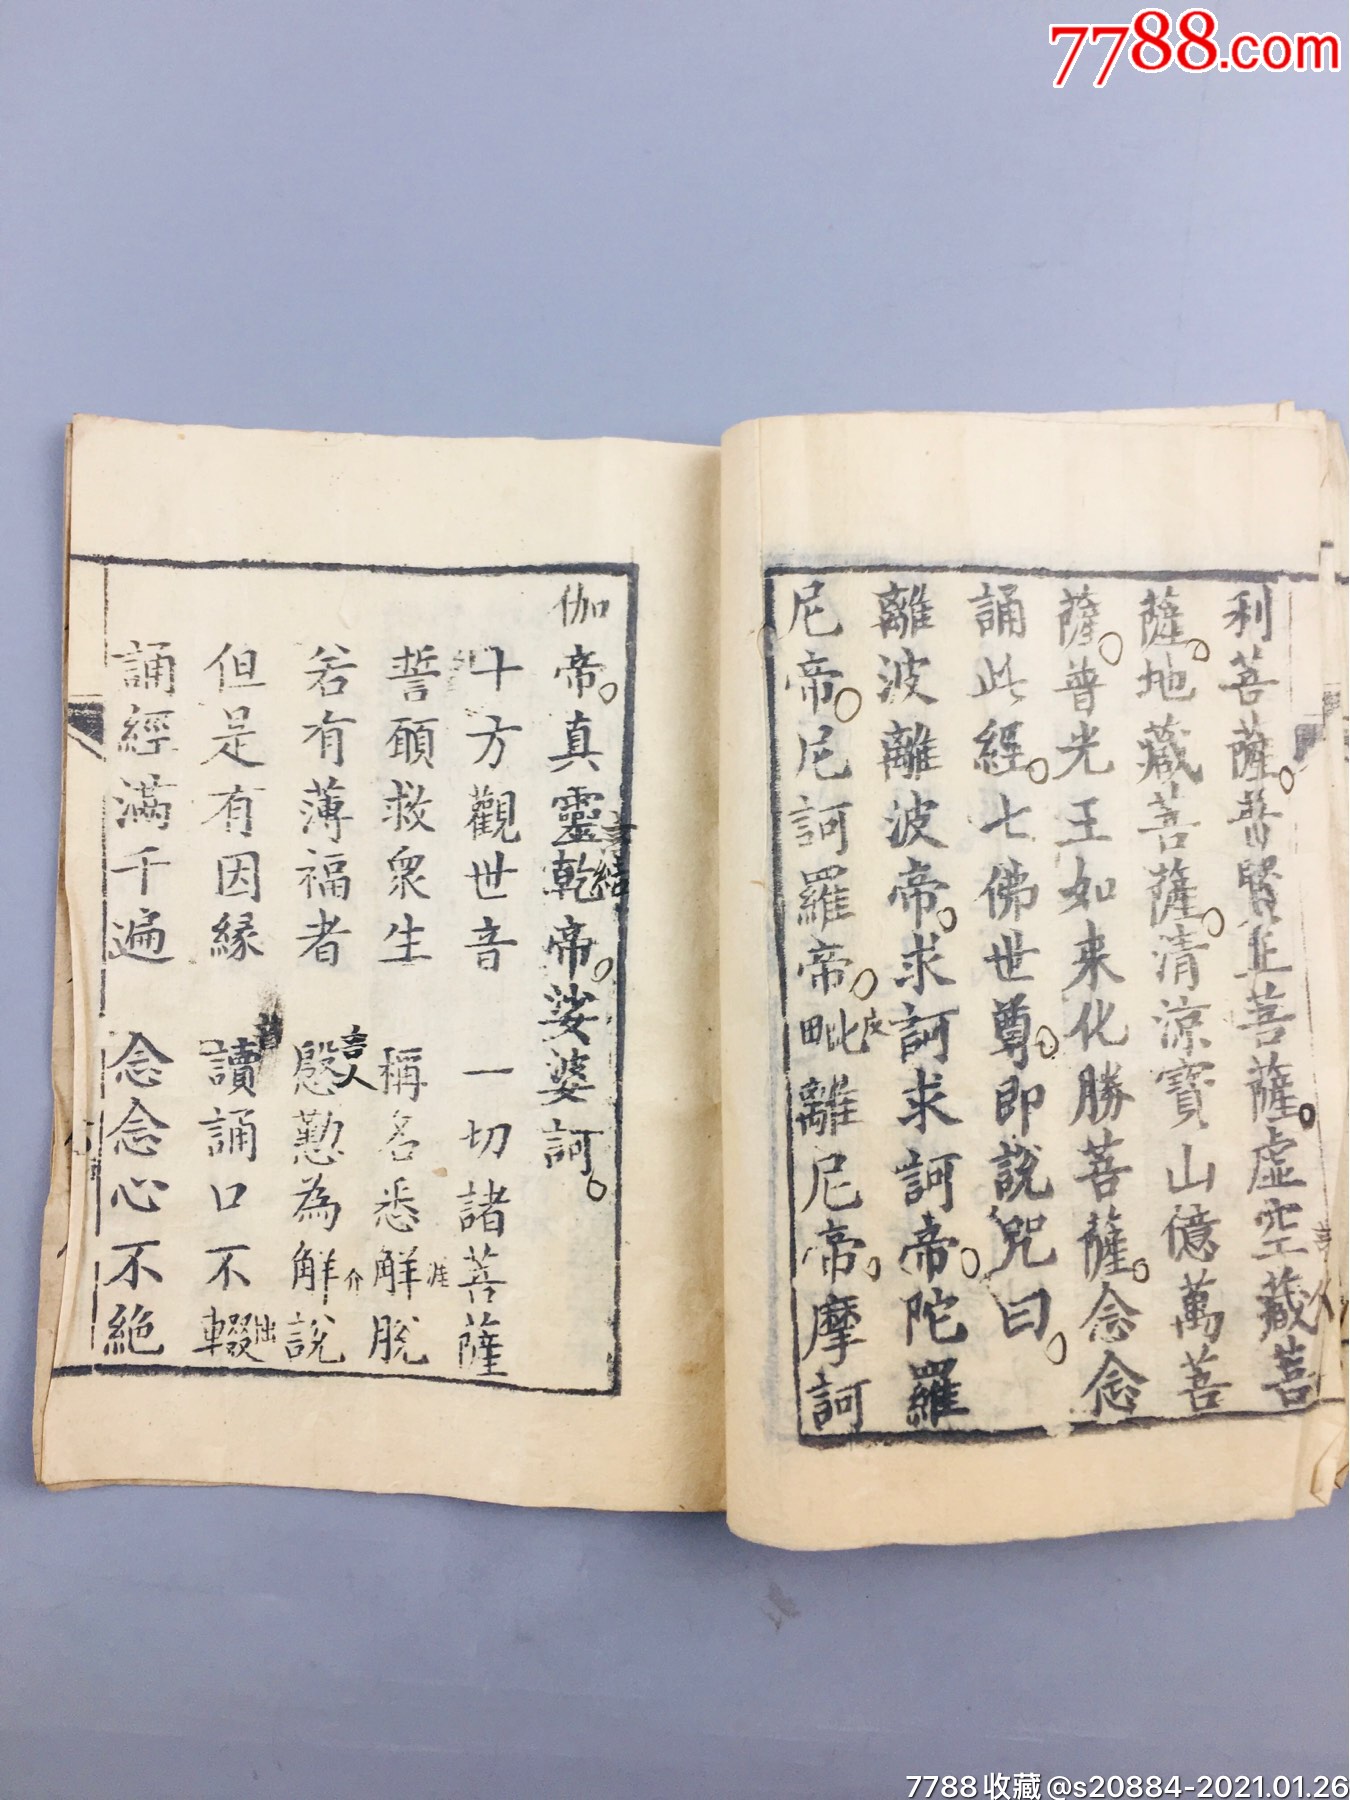 7788.com
利菩薩普賢並菩薩虛空藏菩
薩地藏菩薩清涼寶山億萬菩
薩普光王如来化勝菩薩念念
誦此經七佛世尊即說咒曰
離波離波帝求訶求訶帝陀羅
尼帝尼訶羅帝毗離尼帝摩訶
伽帝真靈乾帝娑婆訶
十方觀世音 一切諸菩薩
誓願救衆生 稱名悉解脫
若有薄福者 慇懃為解說
但是有因緣 讀誦口不輟
誦經滿千遍 念念心不絕
7788收藏@s20884-2021.01.26